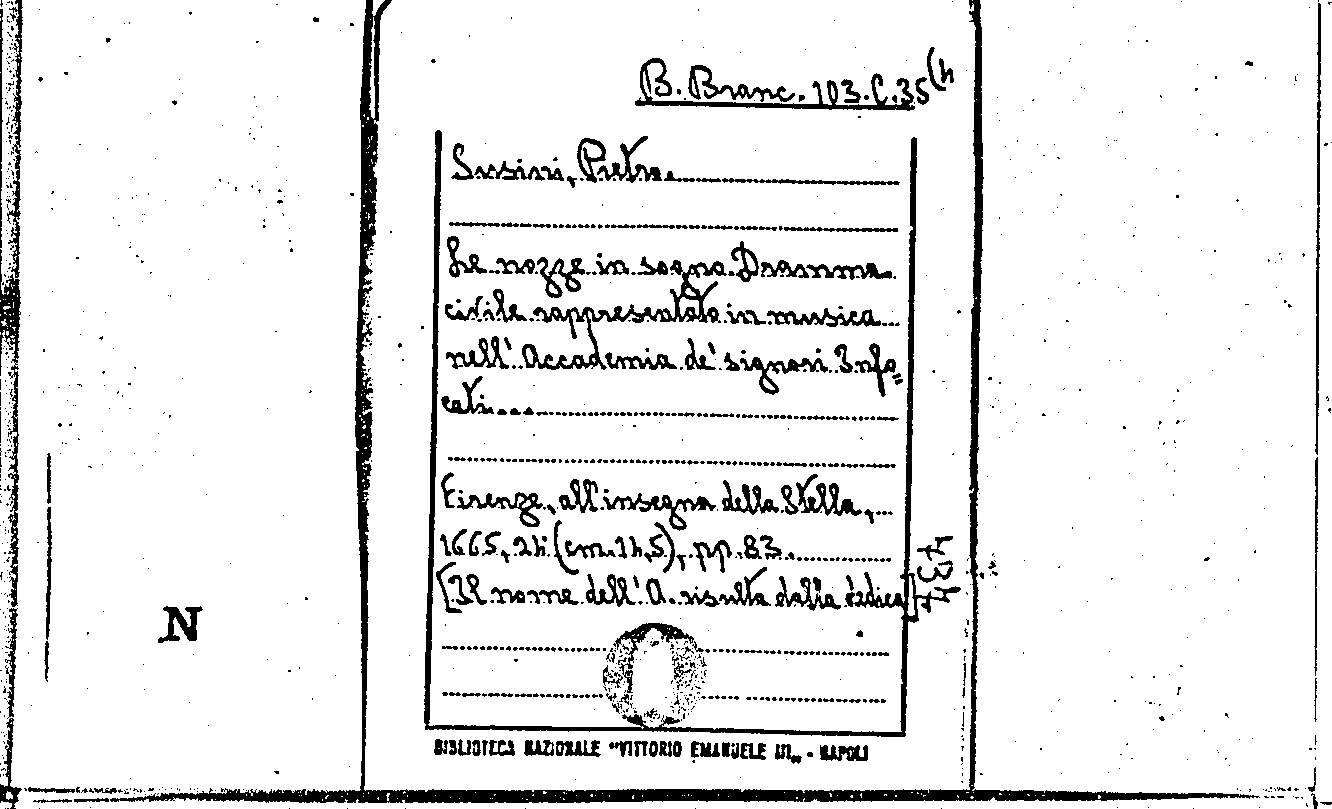 B. Branc. 103.C.35(4
Susini, Pietro.
Le nozze in sogno. Dramma
civile rappresentato in musica
nell'Accademia de' signori Info=
cati...
Firenze, all'insegna della Stella,
1665, 24° (cm. 14,5), pp. 83.
[Il nome dell'A. risulta dalla dedica]
N
BIBLIOTECA NAZIONALE "VITTORIO EMANUELE III„ - NAPOLI